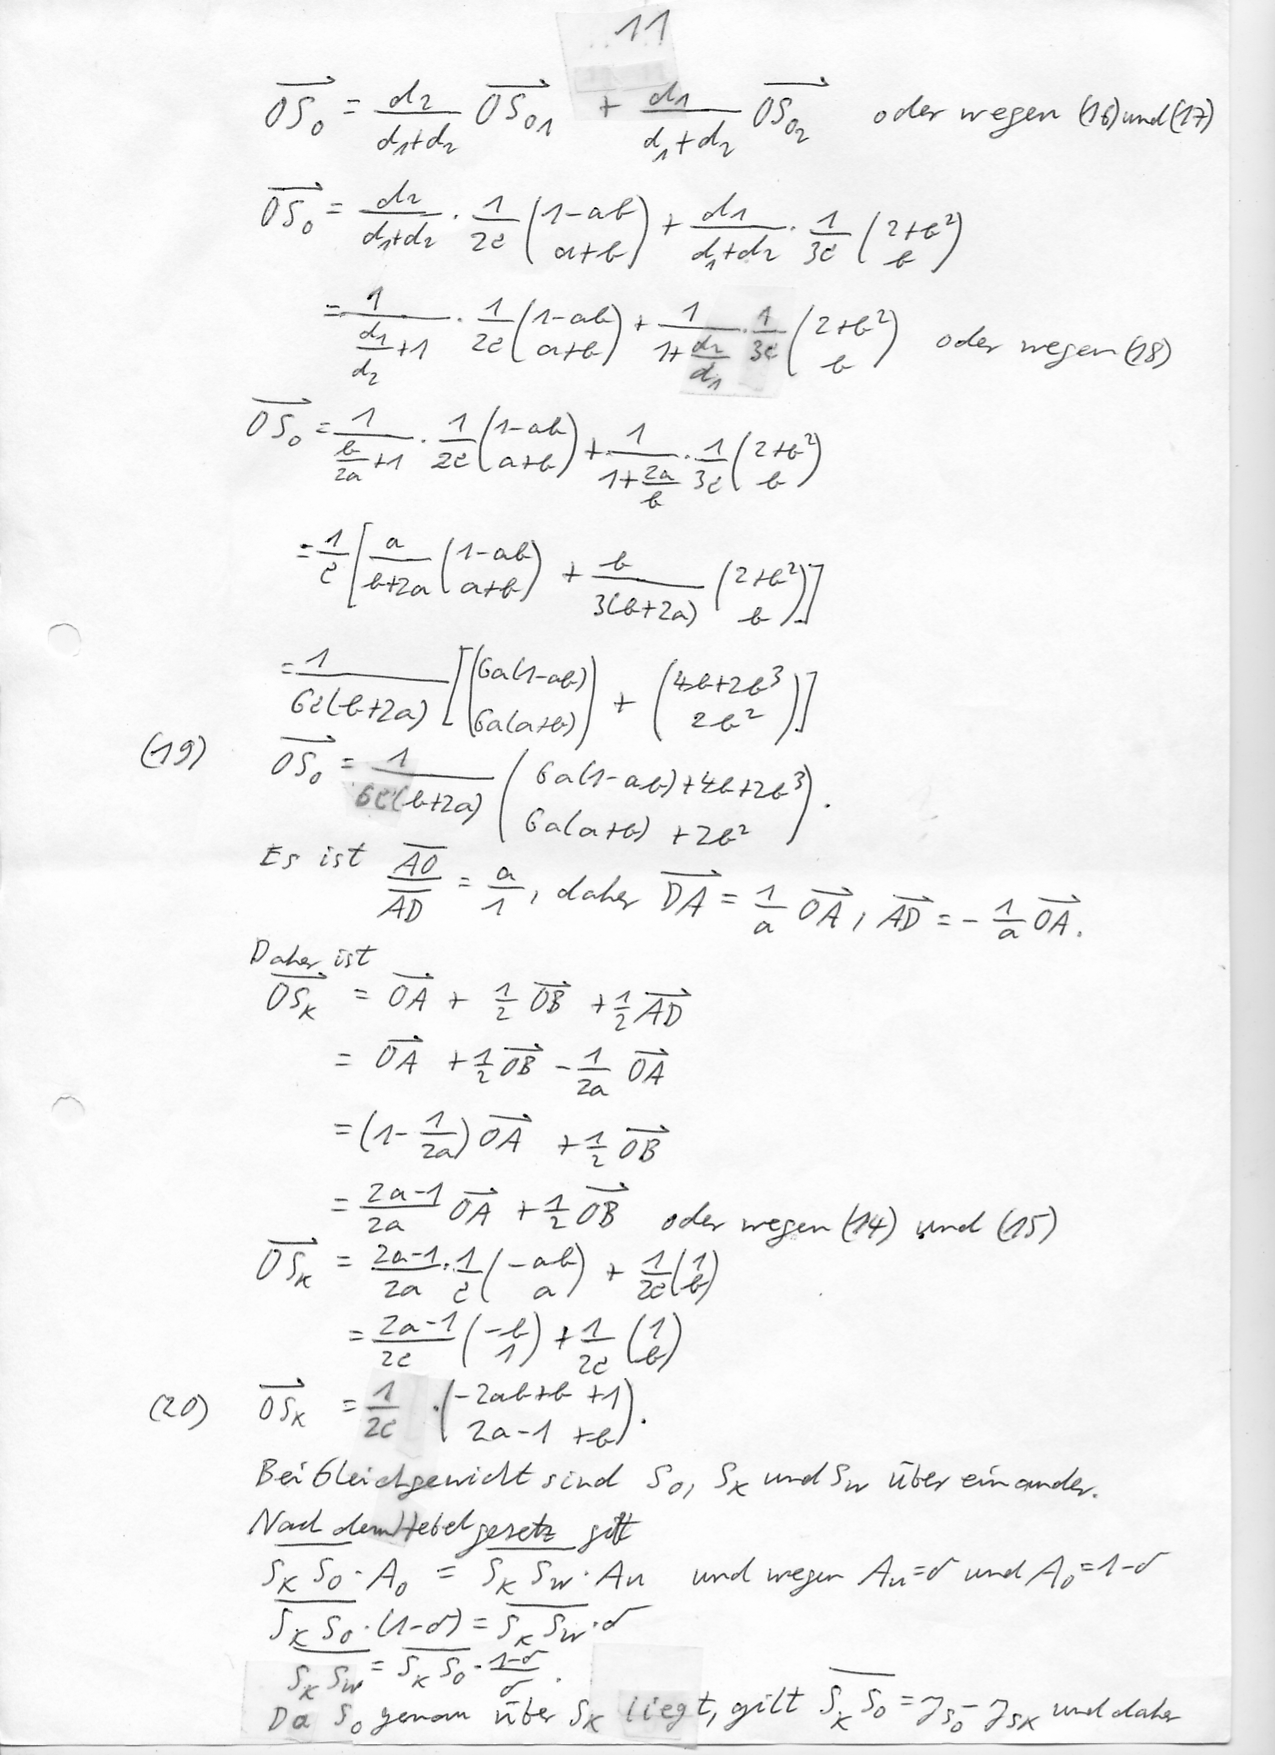 11
\overrightarrow{OS_0} = \frac{d_2}{d_1+d_2} \overrightarrow{OS_{01}} + \frac{d_1}{d_1+d_2} \overrightarrow{OS_{02}} oder wegen (16) und (17)
\overrightarrow{OS_0} = \frac{d_2}{d_1+d_2} \cdot \frac{1}{2c} \binom{1-ab}{a+b} + \frac{d_1}{d_1+d_2} \cdot \frac{1}{3c} \binom{2+b^2}{b}
= \frac{1}{\frac{d_1}{d_2}+1} \cdot \frac{1}{2c} \binom{1-ab}{a+b} + \frac{1}{1+\frac{d_2}{d_1}} \cdot \frac{1}{3c} \binom{2+b^2}{b} oder wegen (18)
\overrightarrow{OS_0} = \frac{1}{\frac{b}{2a}+1} \cdot \frac{1}{2c} \binom{1-ab}{a+b} + \frac{1}{1+\frac{2a}{b}} \cdot \frac{1}{3c} \binom{2+b^2}{b}
= \frac{1}{c} [ \frac{a}{b+2a} \binom{1-ab}{a+b} + \frac{b}{3(b+2a)} \binom{2+b^2}{b} ]
= \frac{1}{6c(b+2a)} [ \binom{6a(1-ab)}{6a(a+b)} + \binom{4b+2b^3}{2b^2} ]
(19) \overrightarrow{OS_0} = \frac{1}{6c(b+2a)} \binom{6a(1-ab)+4b+2b^3}{6a(a+b)+2b^2} .
Es ist \frac{\overline{AO}}{\overline{AD}} = \frac{a}{1}, daher \overrightarrow{DA} = \frac{1}{a} \overrightarrow{OA}, \overrightarrow{AD} = -\frac{1}{a} \overrightarrow{OA}.
Daher ist
\overrightarrow{OS_K} = \overrightarrow{OA} + \frac{1}{2} \overrightarrow{OB} + \frac{1}{2} \overrightarrow{AD}
= \overrightarrow{OA} + \frac{1}{2} \overrightarrow{OB} - \frac{1}{2a} \overrightarrow{OA}
= (1 - \frac{1}{2a}) \overrightarrow{OA} + \frac{1}{2} \overrightarrow{OB}
= \frac{2a-1}{2a} \overrightarrow{OA} + \frac{1}{2} \overrightarrow{OB} oder wegen (14) und (15)
\overrightarrow{OS_K} = \frac{2a-1}{2a} \cdot \frac{1}{c} \binom{-ab}{a} + \frac{1}{2c} \binom{1}{b}
= \frac{2a-1}{2c} \binom{-b}{1} + \frac{1}{2c} \binom{1}{b}
(20) \overrightarrow{OS_K} = \frac{1}{2c} \cdot \binom{-2ab+b+1}{2a-1+b} .
Bei Gleichgewicht sind S_0, S_K und S_W über einander.
Nach dem Hebelgesetz gilt
\overline{S_K S_0} \cdot A_0 = \overline{S_K S_W} \cdot A_u und wegen A_u = σ und A_0 = 1-σ
\overline{S_K S_0} \cdot (1-σ) = \overline{S_K S_W} \cdot σ
\overline{S_K S_W} = \overline{S_K S_0} \cdot \frac{1-σ}{σ} .
Da S_0 genau über S_K liegt, gilt \overline{S_K S_0} = y_{S_0} - y_{S_K} und daher